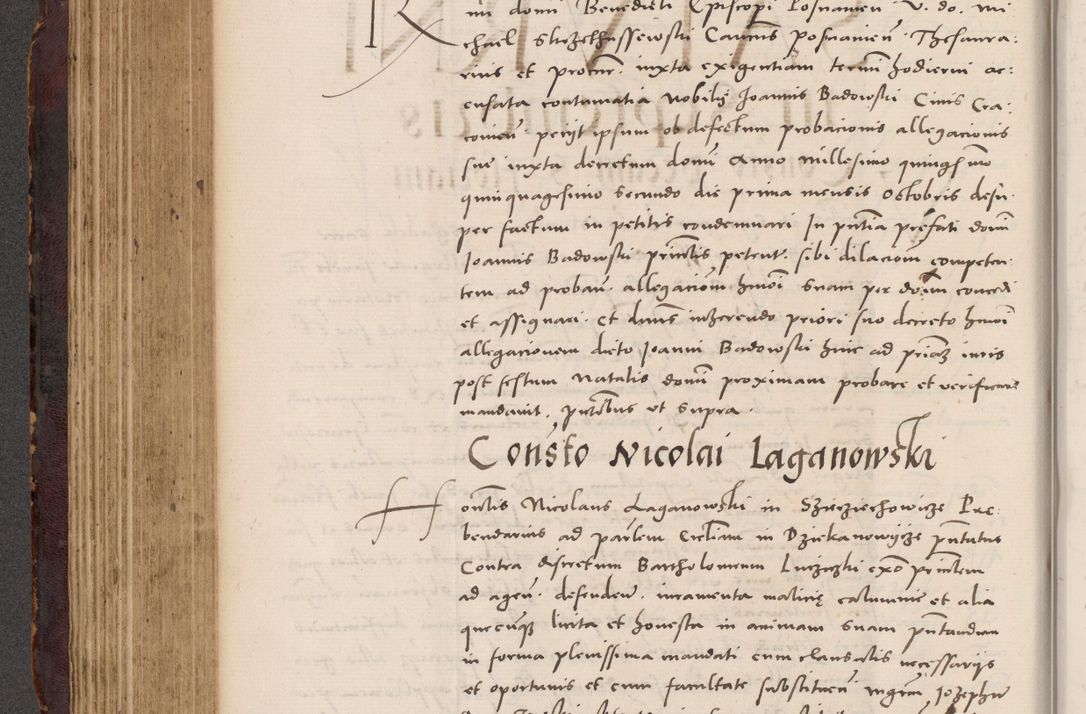 mi domi Benedicti Episcopi Posnanien V. do. Mi
chael Skrzethussewski Canus posnanien Thesaura:
rius et procur. iuxta exigentiam termi hodierni ac:
cusata contumatia Nobilis Joannis Badowski Civis Cra:
covien. periit ipsum ob defectum probacionis allegacionis
sue iuxta decretum domi Anno millesimo quingsmo
quinquagesimo secundo die prima mensis Octobris desu.
per factum in petitis condemnari In pntia prefati domi
Joannis Badowski princlis petent. sibi dilaciom competen:
tem ad proban. allegaciom hmoi suam per domi concedi
et assignari. Et dnus inherendo priori suo decreto hmoi
allegacionem dicto Joanni Badowski hinc ad primaz iuris
post festum Natalis domi proximam probare et verificare
mandavit. pntibus ut supra.
Consto Nicolai Laganowski
Honolis Nicolaus Laganowski in Szieziechowicze Pre:
bendarius ad parlem Eccliam in Dziekanowycze pntatus
Contra discretum Bartholomeum Luczicski exo principlem
ad agen. defenden. iuramenta malicie calumnie et alia
quecunqz licita et honesta in animam suam pntandum
in forma plenissima mandati cum clausulis necessarijs
et oportunis et cum facultate substituen mgrm Jozephu